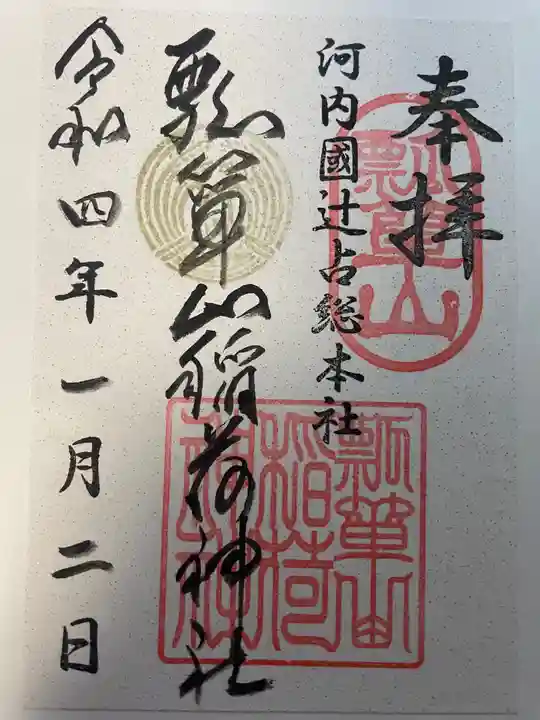 奉拝
瓢箪山
河内國辻占総本社
瓢箪山稲荷神社
瓢箪山
稲荷
神社
令和四年一月二日